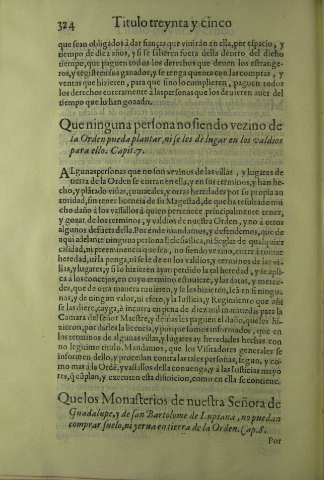 324 Titulo treynta y cinco
que sean obligados à dar fianças que viuirán en ella, por espacio, y
tiempo de diez años, y si se salieren fuera della dentro del dicho
tiempo, que paguen todos los derechos que deuen los estrange-
ros, y registren sus ganados, y se tenga quenta con las compras, y
ventas que hizieren, para que sino lo cumplieren, paguen todos
los derechos enteramente à las personas que los deuieren auer del
tiempo que lo han gozado.
Que ninguna persona no siendo vezino de
la Orden pueda plantar, ni se les de lugar en los valdios
para ello. Capit. 7.
ALgunas personas que no son vezinos de las villas, y lugares de
tierra de la Orden se entran en ella, y en sus terminos, y han he-
cho, y plātado viñas, y otras heredades por su propia au
toridad, sin tener licencia de su Magestad, de que ha resultado mu
cho daño à los vassallos à quien pertenece principalmente tener,
y gozar de los terminos, y valdios de nuestra Orden, y no à otros
algunos defuera della. Por ende mandamos, y defendemos, que de
aqui adelante ninguna persona Eclesiastica, ni Seglar de qualquier
calidad, ni preeminencia que sea, no siendo vezino, entre à tomar
heredad, ni la ponga, ni se le de en los valdios, y terminos de las vi-
llas, y lugares, y si lo hizieren ayan perdido la tal heredad, y se apli-
ca à los concejos, en cuyo termino estuuiere, y las datas, y merce-
des, que de otra manera tuuieren, y se les hizieren, seā en si ningu-
nas, y de ningun valor, ni efeto, y la Iusticia, y Regimiento que assi
se las diere, cayga, è incurra en pena de diez mil marauedis para la
Camara del señor Maestre, y demas les paguen el daño, que les hi-
zieron, por darles la licencia, y porque somos informados, que en
los terminos de algunas villas, y lugares ay heredades hechas con
no legitimo titulo. Mandamos, que los Visitadores generales se
informen dello, y procedan contra las tales personas, segun, y co-
mo mas à la Ordē, y vassallos della conuenga, y à las Iusticias mayo
res, q̄ cūplan, y executen esta disposicion, como en ella se contiene.
Que los Monasterios de nuestra Señora de
Guadalupe, y de san Bartolome de Lupiana, no puedan
comprar suelo, ni yerua en tierra de la Orden. Cap. 8.
Por